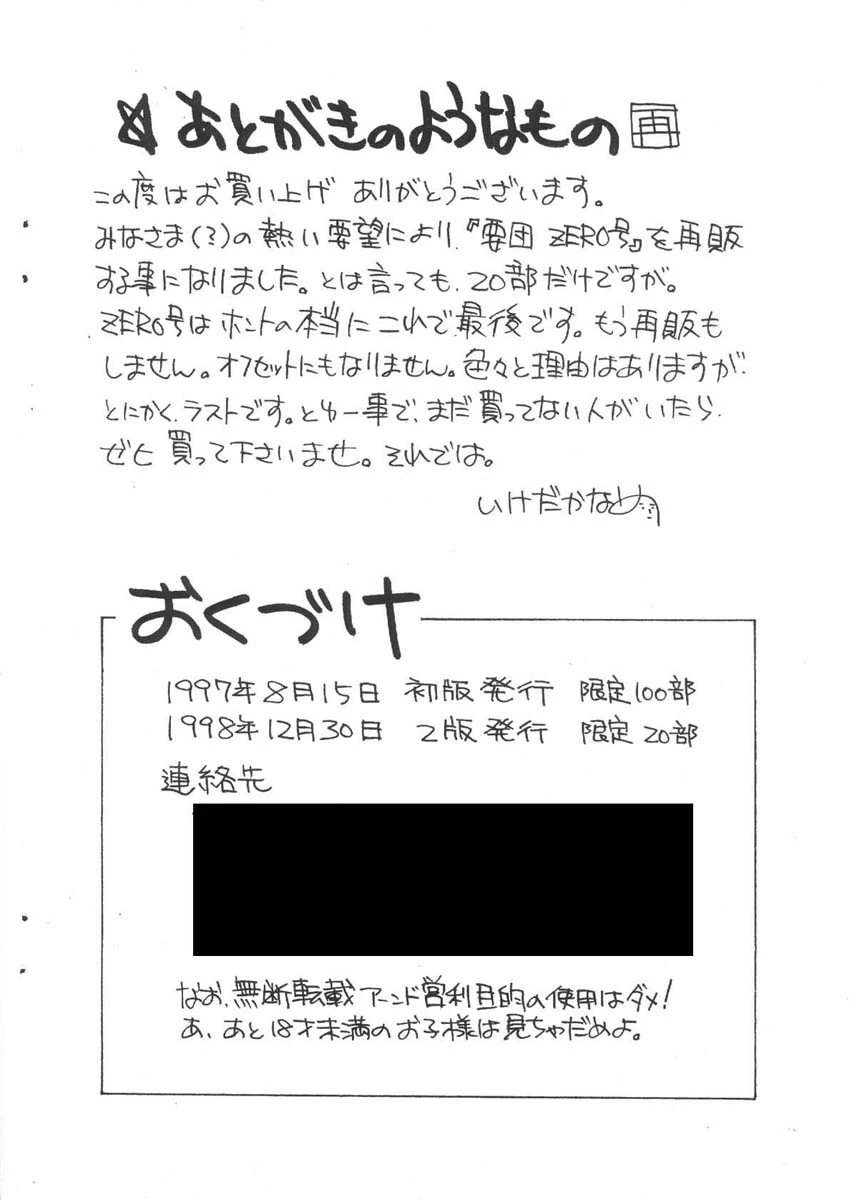 ☆ あとがきのようなもの 再
この度はお買い上げ ありがとうございます。
みなさま(?)の熱い要望により、『要団 ZERO号』を再販
する事になりました。とは言っても、20部だけですが。
ZERO号はホントの本当にこれで最後です。もう再販も
しません。オフセットにもなりません。色々と理由はありますが
とにかく、ラストです。とゆー事で、まだ買ってない人がいたら、
ぜヒ 買って下さいませ。それでは。
いけだかなめ
おくづけ
1997年8月15日 初版発行 限定100部
1998年12月30日 2版発行 限定20部
連絡先
なお、無断転載アーンド営利目的の使用はダメ!
あ、あと18才未満のお子様は見ちゃだめよ。